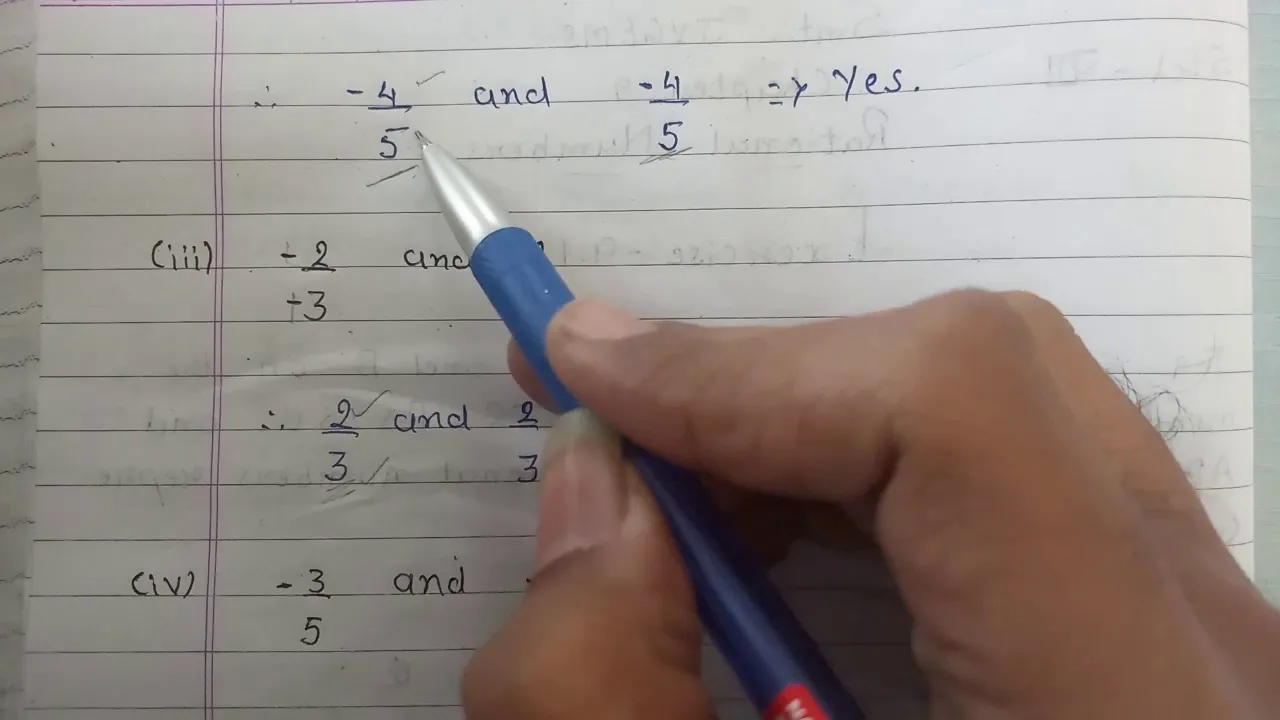 ∴ -4/5 and -4/5 => Yes.
(iii) -2/-3 and
∴ 2/3 and 2/3
(iv) -3/5 and